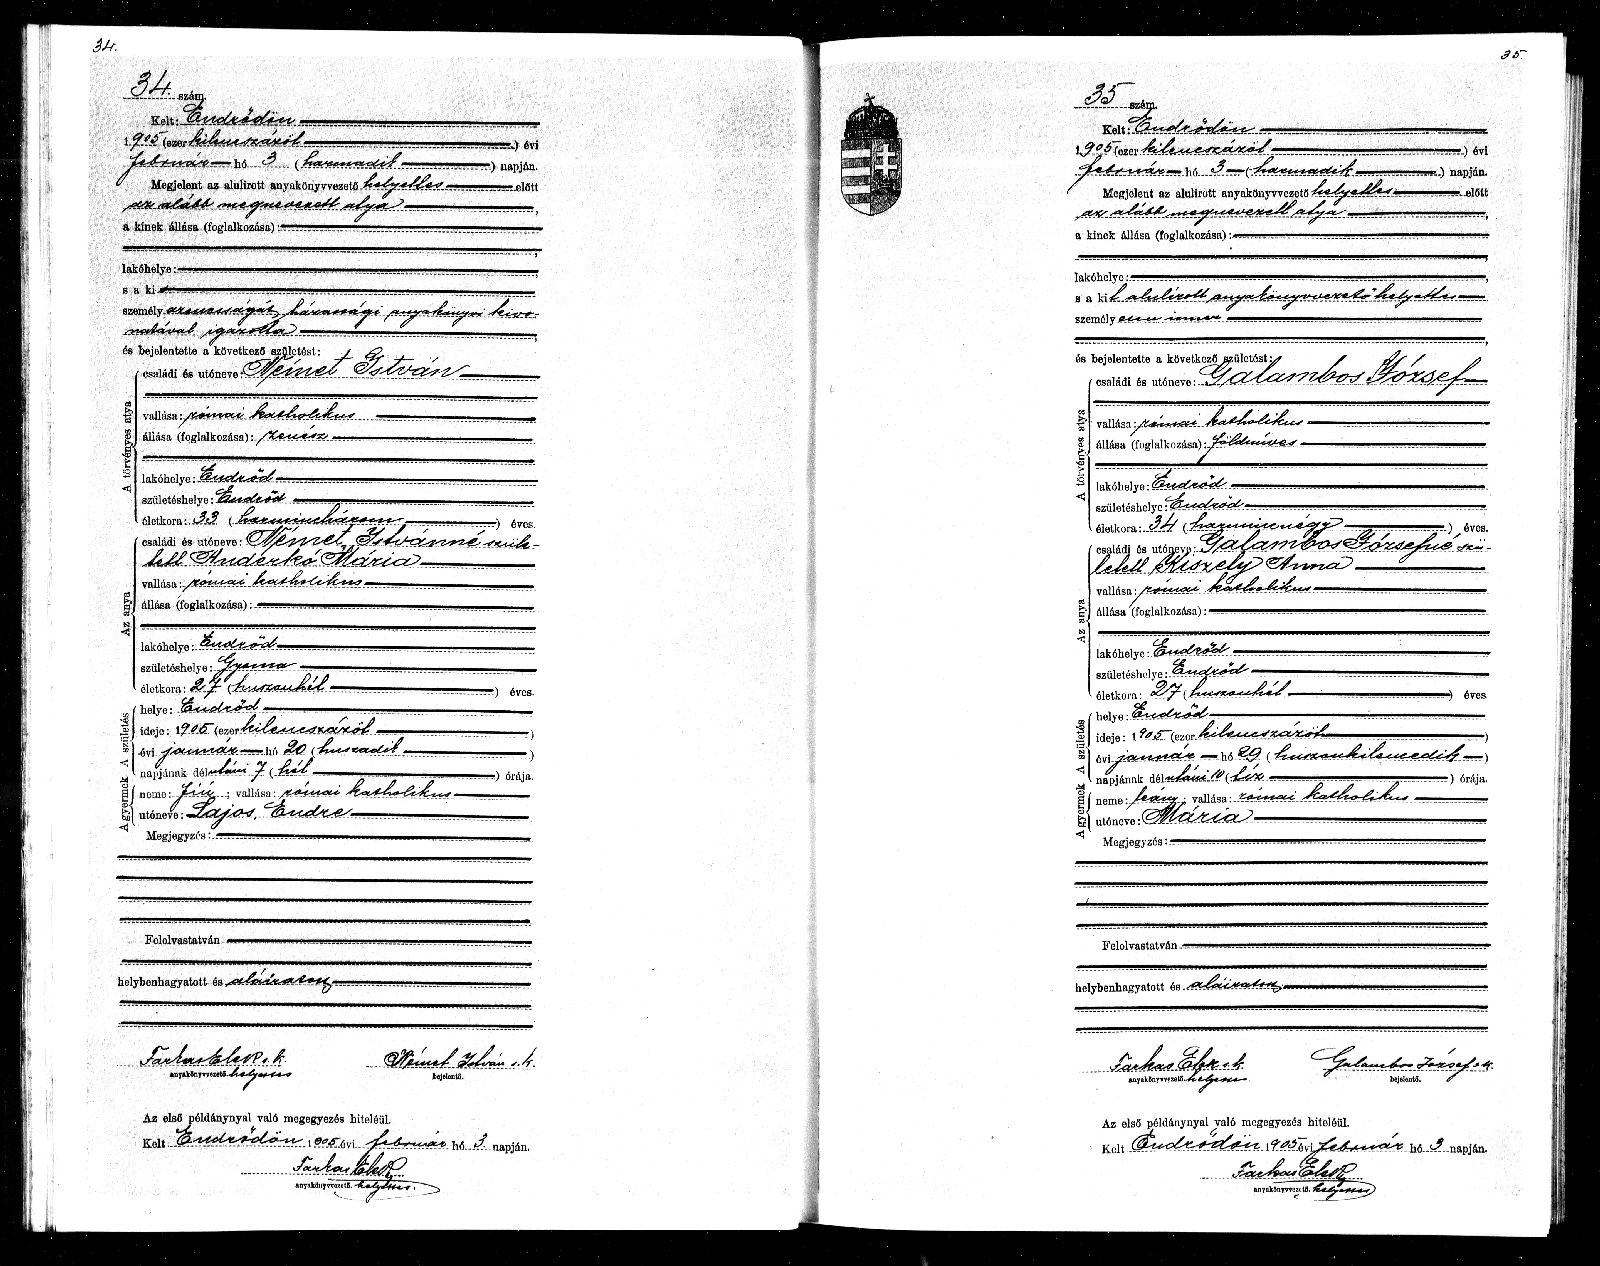 34.
34. szám.
Kelt: Endrődön
1905 (ezer kilenczszázöt) évi
február hó 3 (harmadik) napján.
Megjelent az alulirott anyakönyvvezető helyettes előtt
az alább megnevezett atya,
a kinek állása (foglalkozása):
lakóhelye:
s a ki
személyazonosságát házassági anyakönyvi kivo-
natával igazolta
és bejelentette a következő születést:
A törvényes atya
családi és utóneve: Német István
vallása: római katholikus
állása (foglalkozása): zenész
lakóhelye: Endrőd
születéshelye: Endrőd
életkora: 33 (harminczhárom) éves.
Az anya
családi és utóneve: Német Istvánné szüle-
tett Anderkó Mária
vallása: római katholikus
állása (foglalkozása):
lakóhelye: Endrőd
születéshelye: Gyoma
életkora: 27 (huszonhét) éves.
A születés
helye: Endrőd
ideje: 1905 (ezer kilenczszázöt)
évi január hó 20 (huszadik)
napjának délutáni 7 (hét) órája.
A gyermek
neme: fiú; vallása: római katholikus
utóneve: Lajos, Endre
Megjegyzés:
Felolvastatván
helybenhagyatott és aláiratott
Farkas Elek s. k. Német István s. k.
anyakönyvvezető helyettes bejelentő.
Az első példánynyal való megegyezés hiteléül.
Kelt Endrődön 1905 évi február hó 3 napján.
Farkas Elek
anyakönyvvezető. helyettes.
35.
35 szám.
Kelt: Endrődön
1905 (ezer kilenczszázöt) évi
február hó 3 (harmadik) napján.
Megjelent az alulirott anyakönyvvezető helyettes előtt
az alább megnevezett atya,
a kinek állása (foglalkozása):
lakóhelye:
s a kit alulirott anyakönyvvezető helyettes
személyesen ismer
és bejelentette a következő születést:
A törvényes atya
családi és utóneve: Galambos József
vallása: római katholikus
állása (foglalkozása): földmíves
lakóhelye: Endrőd
születéshelye: Endrőd
életkora: 34 (harmincznégy) éves.
Az anya
családi és utóneve: Galambos Józsefné szü-
letett Kiszely Anna
vallása: római katholikus
állása (foglalkozása):
lakóhelye: Endrőd
születéshelye: Endrőd
életkora: 27 (huszonhét) éves
A születés
helye: Endrőd
ideje: 1905 (ezer kilenczszázöt)
évi január hó 29 (huszonkilenczedik)
napjának délutáni 10 (tíz) órája.
A gyermek
neme: leány; vallása: római katholikus
utóneve: Mária
Megjegyzés:
Felolvastatván
helybenhagyatott és aláiratott
Farkas Elek s. k. Galambos József s. k.
anyakönyvvezető helyettes bejelentő.
Az első példánynyal való megegyezés hiteléül.
Kelt Endrődön 1905 évi február hó 3 napján.
Farkas Elek
anyakönyvvezető. helyettes